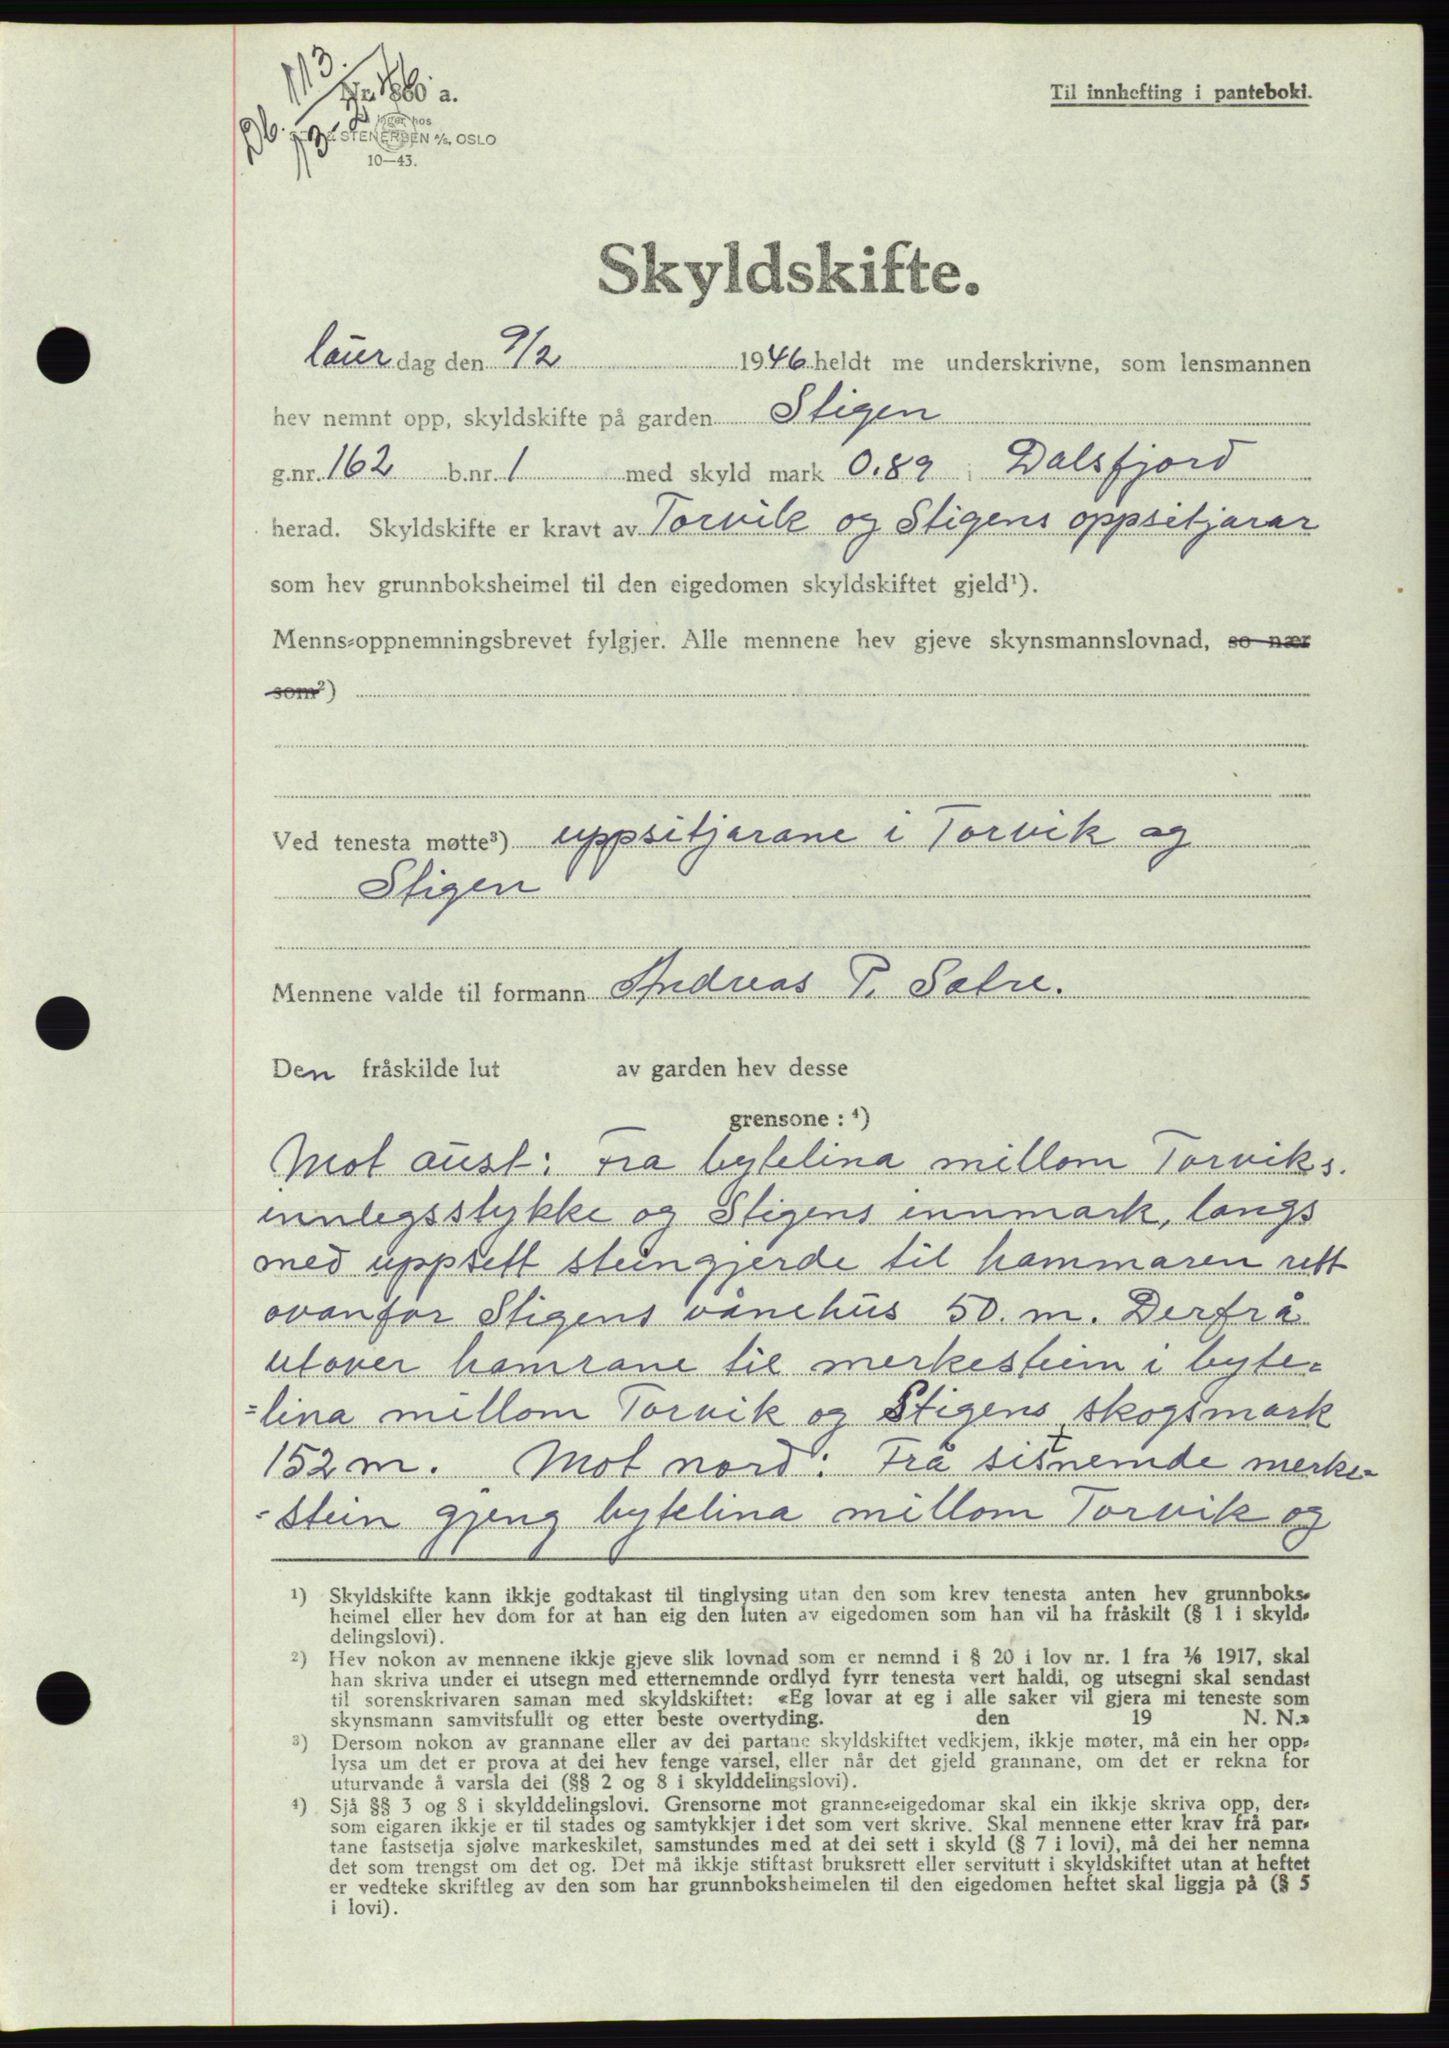 Db. 113/1946.
Nr. 860 a.
Til innhefting i panteboki.
I lager hos
STENERSEN A/S, OSLO
10—43.
Skyldskifte.
laur dag den 9/2 1946 heldt me underskrivne, som lensmannen
hev nemnt opp, skyldskifte på garden Stigen
g.nr. 162 b.nr. 1 med skyld mark 0.89 i Dalsfjord
herad. Skyldskifte er kravt av Torvik og Stigens oppsitjarar
som hev grunnboksheimel til den eigedomen skyldskiftet gjeld¹).
Menns-oppnemningsbrevet fylgjer. Alle mennene hev gjeve skynsmannslovnad, so nær
som²)
Ved tenesta møtte³) uppsitjarane i Torvik og
Stigen
Mennene valde til formann Andreas P. Satre.
Den fråskilde lut av garden hev desse
grensone: ⁴)
Mot aust: Fra bytelina millom Torviks.
innlegsstykke og Stigens innmark, langs
med uppsett steingjerde til hammaren rett
ovanfor Stigens vånehus 50. m. Derfrå
utover hamrane til merkesteim i byte=
=lina millom Torvik og Stigens skogsmark
152 m. Mot nord: Frå sistnemde merke=
=stein gjeng bytelina millom Torvik og
¹) Skyldskifte kann ikkje godtakast til tinglysing utan den som krev tenesta anten hev grunnboks-
heimel eller hev dom for at han eig den luten av eigedomen som han vil ha fråskilt (§ 1 i skyld-
delingslovi).
²) Hev nokon av mennene ikkje gjeve slik lovnad som er nemnd i § 20 i lov nr. 1 fra 1/6 1917, skal
han skriva under ei utsegn med etternemnde ordlyd fyrr tenesta vert haldi, og utsegni skal sendast
til sorenskrivaren saman med skyldskiftet: «Eg lovar at eg i alle saker vil gjera mi teneste som
skynsmann samvitsfullt og etter beste overtyding. den 19 N. N.»
³) Dersom nokon av grannane eller av dei partane skyldskiftet vedkjem, ikkje møter, må ein her opp-
lysa um det er prova at dei hev fenge varsel, eller når det gjeld grannane, om det er rekna for
uturvande å varsla dei (§§ 2 og 8 i skylddelingslovi).
⁴) Sjå §§ 3 og 8 i skylddelingslovi. Grensorne mot granne-eigedomar skal ein ikkje skriva opp, der-
som eigaren ikkje er til stades og samtykkjer i det som vert skrive. Skal mennene etter krav frå par-
tane fastsetja sjølve markeskilet, samstundes med at dei sett i skyld (§ 7 i lovi), må dei her nemna
det som trengst om det og. Det må ikkje stiftast bruksrett eller servitutt i skyldskiftet utan at heftet
er vedteke skriftleg av den som har grunnboksheimelen til den eigedomen heftet skal liggja på (§ 5
i lovi).